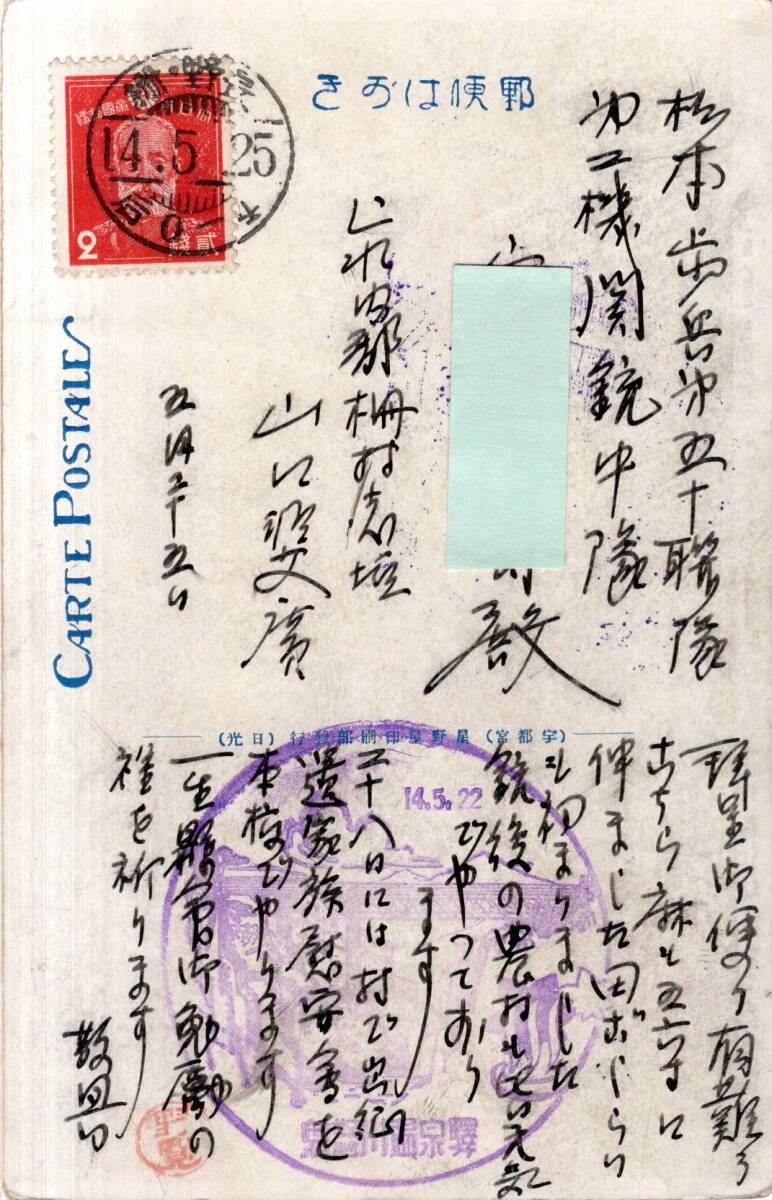 郵便はがき
大日本帝國郵便
2
貳錢
14.5.25
CARTE POSTALE
松本歩兵第五十聯隊
第二機関銃中隊
殿
上水内郡柵村志垣
山口
五月二十五日
(宇都宮)星野屋印刷部發行(日光)
拝呈御便り有難う
こちら麻も五六寸に
伸ました田ごしらい
も初まりました
銃後の農村も元気
でやっており
ます
二十八日には村で出征
遺家族慰安會を
本校でやります
一生懸命御勉励の
程を祈ります
敬具
14.5.22
鬼怒川温泉驛